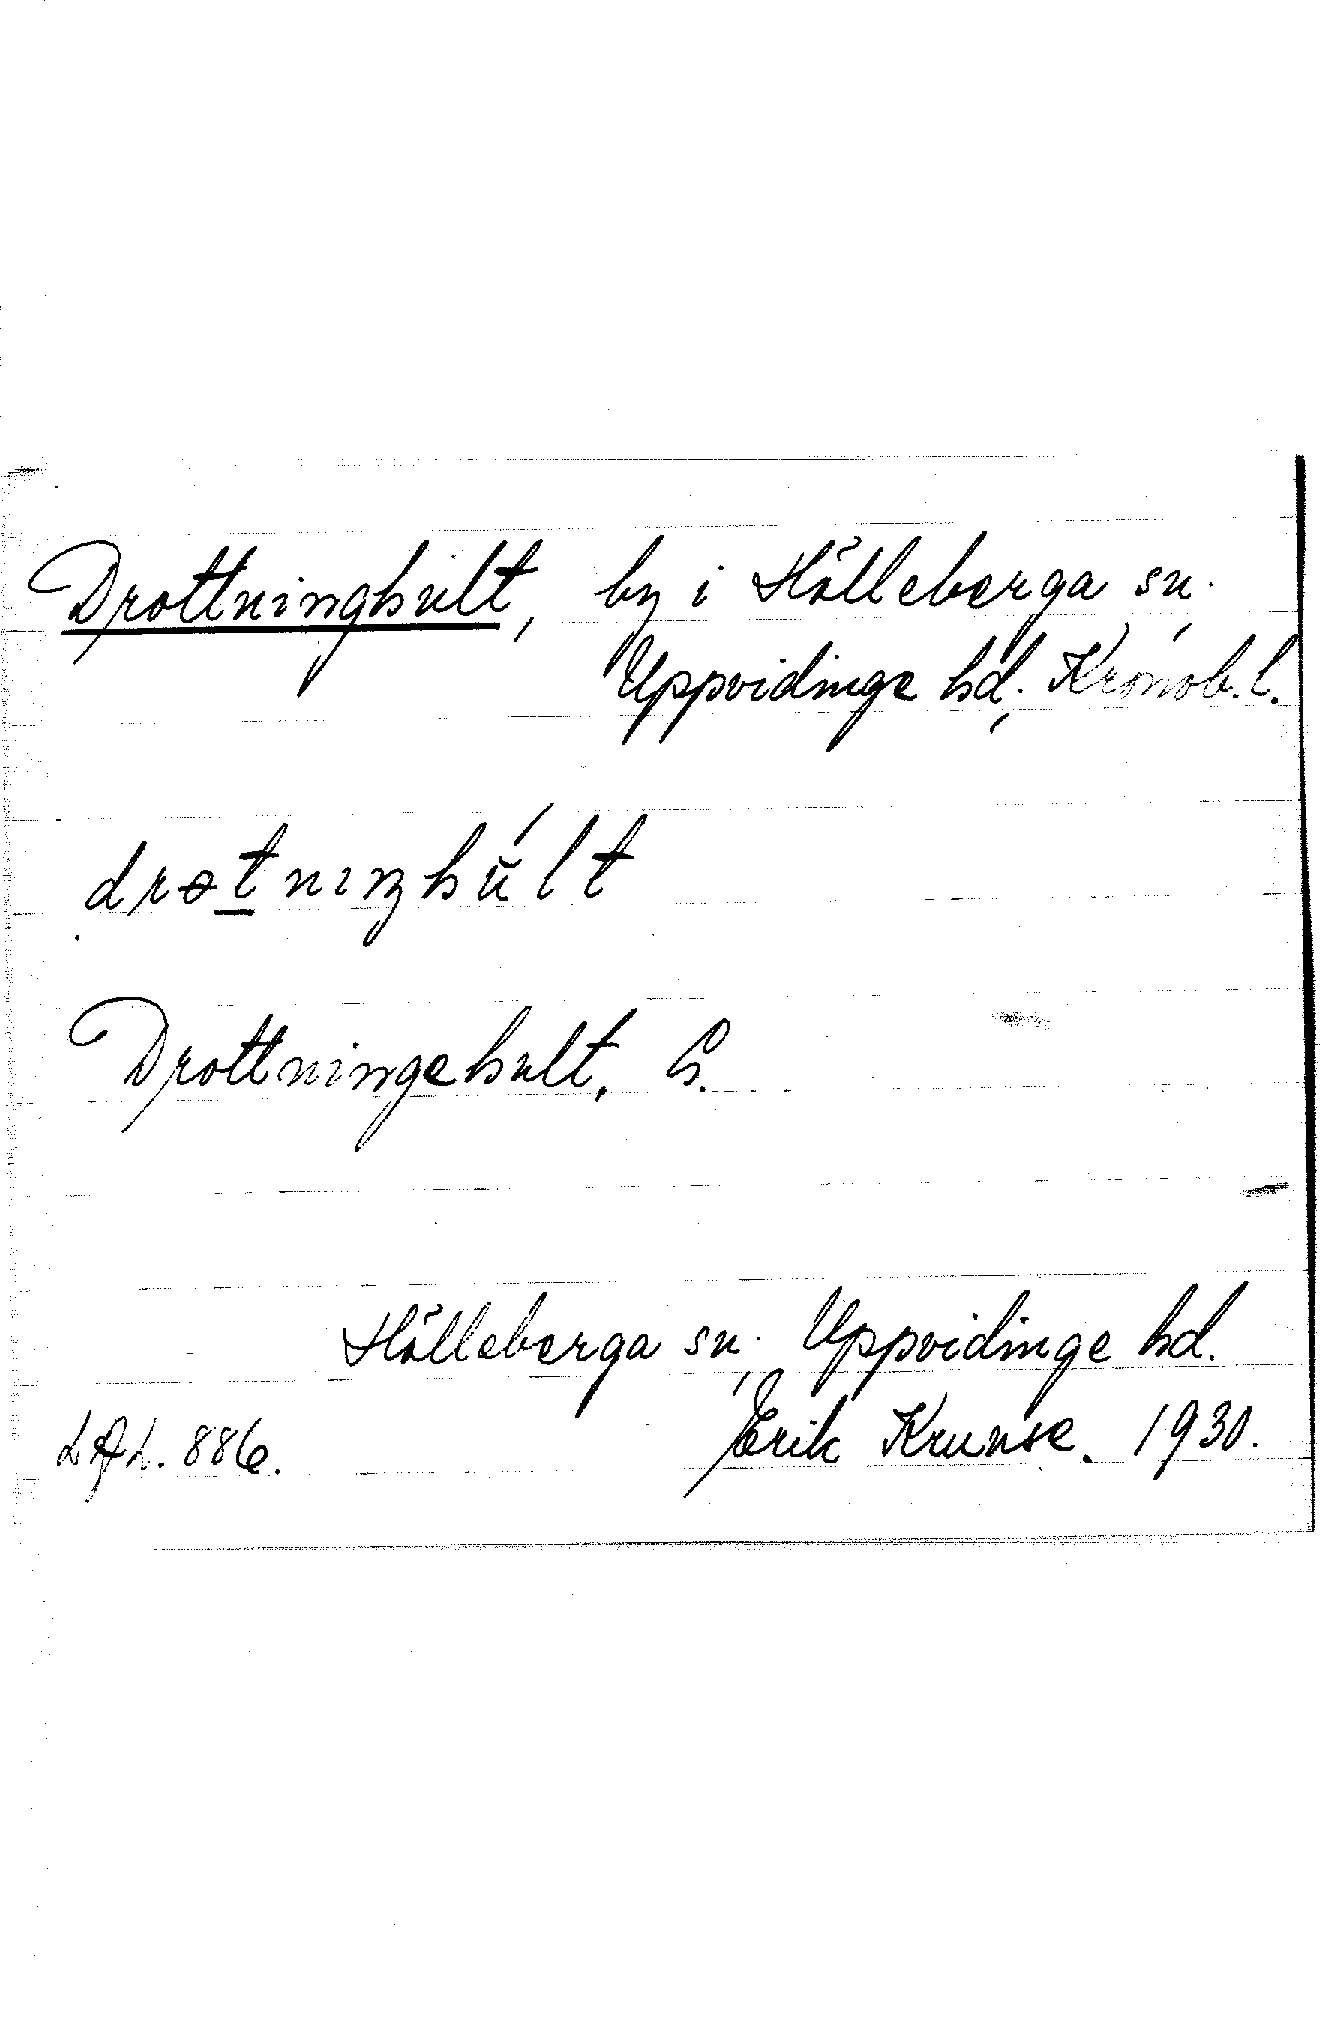 Drottninghult, by i Hälleberga sn.
Uppvidinge hd. Kronob. l.
drɵtnıŋhúlt
Drottningehult. G.
Hälleberga sn. Uppvidinge hd.
LAL. 886. Erik Krunse. 1930.